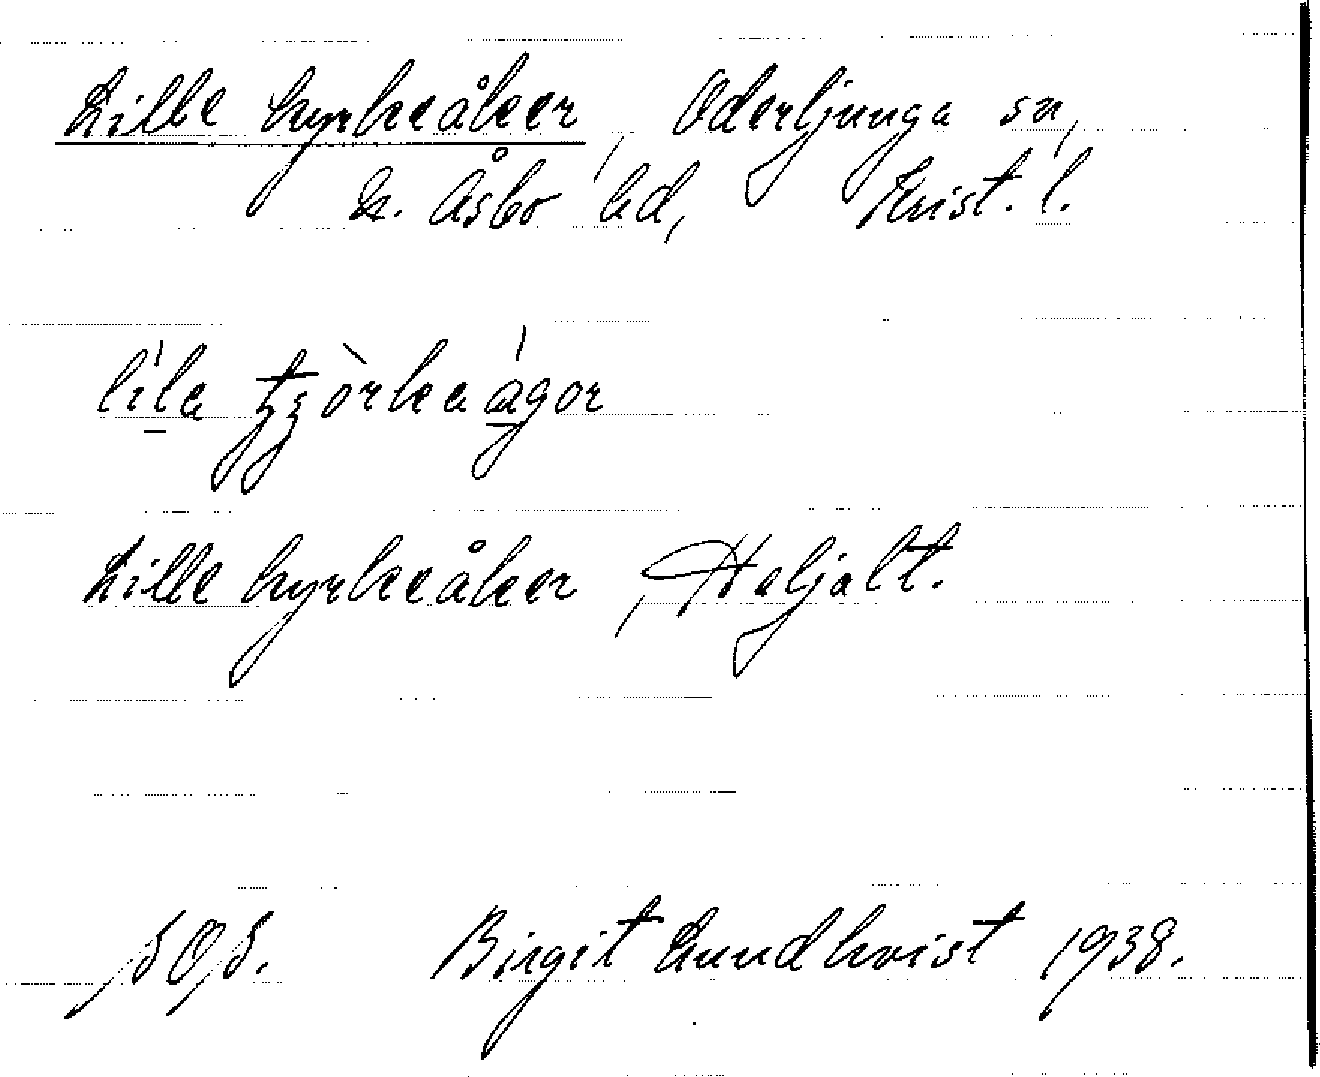 Lille kyrkeåker, Oderljunga sn,
N. Åsbo hd, Krist. l.
lila tjörkaågor
Lille kyrkeåker, Haljalt.
SOS. Birgit Lundkvist 1938.